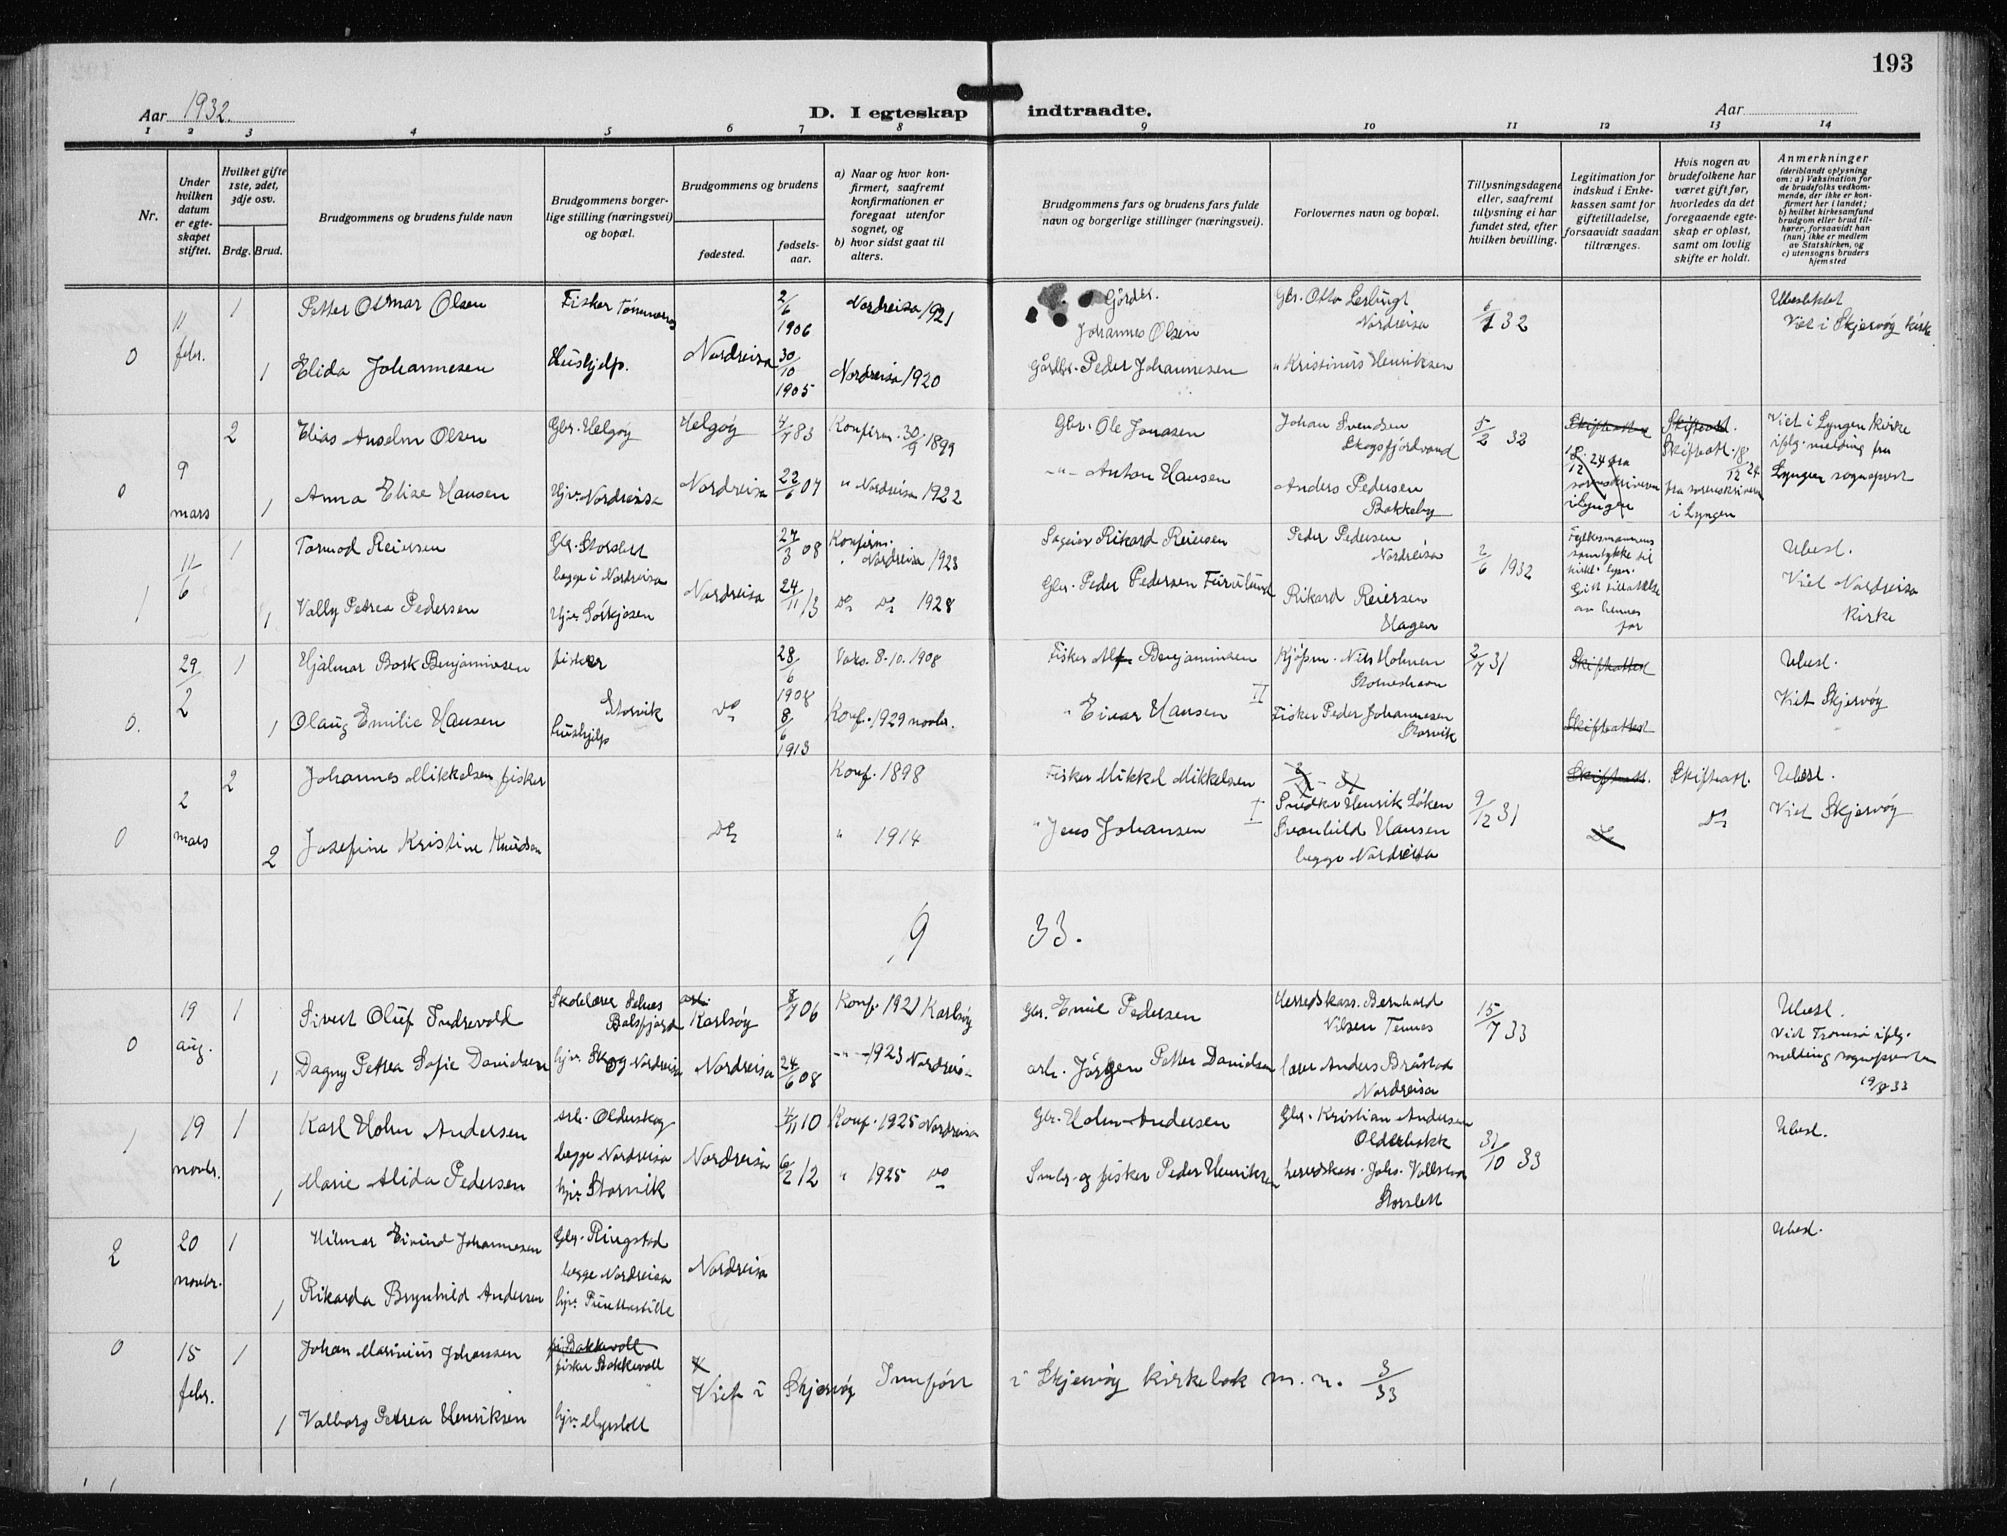 193
Aar 1932.
D. I egteskap indtraadte.
Aar
1 2 3 4 5 6 7 8 9 10 11 12 13 14
Nr.
Under hvilken datum er egteskapet stiftet.
Hvilket gifte 1ste, 2det, 3dje osv.
Brdg. Brud.
Brudgommens og brudens fulde navn
Brudgommens borgerlige stilling (næringsvei) og bopæl.
Brudgommens og brudens
fødested.
fødselsaar.
a) Naar og hvor konfirmert, saafremt konfirmationen er foregaat utenfor sognet, og
b) hvor sidst gaat til alters.
Brudgommens fars og brudens fars fulde navn og borgerlige stillinger (næringsvei).
Forlovernes navn og bopæl.
Tillysningsdagene eller, saafremt tillysning ei har fundet sted, efter hvilken bevilling.
Legitimation for indskud i Enkekassen samt for giftetilladelse, forsaavidt saadan tiltrænges.
Hvis nogen av brudefolkene har været gift før, hvorledes da det foregaaende egteskap er opløst, samt om lovlig skifte er holdt.
Anmerkninger (deriblandt oplysning om: a) Vaksination for de brudefolks vedkommende, der ikke er konfirmert her i landet; b) hvilket kirkesamfund brudgom eller brud tilhører, forsaavidt han (hun) ikke er medlem av Statskirken, og c) utensogns bruders hjemsted
0 11 febr. 1 Petter Otmar Olsen Fisker 2/6 1906 Nordreisa 1921 Gårdbr. Johannes Olsen Gbr. Otto Nordreisa 32 Ubeslektet Viet i Skjervøy kirke
1 Elida Johannesen Hushjelp. Nordreisa 30/10 1905 Nordreisa 1920 Gårdbr. Peder Johannesen " Kristinus Henriksen
0 9 mars 2 Elias Anselm Olsen Gbr. Helgøy Helgøy 4/7 83 Konfirm. 30/9 1899 Gbr. Ole Jonasen Johan Svendsen Skogsfjordvand 5/2 32 Skifteattest 18/12 24 fra sorenskriveren i Lyngen Skifteatt. Skifteatt. 18/12 24 fra sorenskriveren i Lyngen Viet i Lyngen kirke iflg. melding fra Lyngen sogneprest
1 Anna Elise Hansen Hjv. Nordreisa Nordreisa 22/6 04 " Nordreisa 1922 -"- Anton Hansen Anders Pedersen Bakkeby
1 11/6 1 Tormod Reiersen Gbr. Storslett begge i Nordreisa 27/3 08 Konfirm. Nordreisa 1923 Rikard Reiersen Peder Pedersen Nordreisa 2/6 1932 Fylkesmannens samtykke til av hennes far Ubesl. Viet Nordreisa kirke
1 Vally Petrea Pedersen Hjv. Sørkjosen Nordreisa 24/11 13 do do 1928 Gbr. Peder Pedersen Rikard Reiersen Hagen
0. 29/2 1 Hjalmar Bork Benjaminsen fisker Storvik 28/6 1908 Vaks. 8-10. 1908 Fisker Alf Benjaminsen Kjøpm. Nils Holmen 2/7 31 Skifteattest Ubesl. Viet Skjervøy
1 Olaug Emilie Hansen Hushjelp do 8/6 1913 Konf. 1929 novbr. " Einar Hansen II Fisker Peder Johannesen Storvik Skifteattest
0 2 mars 2 Johannes Mikkelsen fisker Konf. 1898 Fisker Mikkel Mikkelsen Snedker Henrik Løken 9/12 31 Skifteatt. Skifteatt. Ubesl. Viet Skjervøy
2 Josefine Kristine Knudsen do " 1914 " Jens Johansen I Svanhild Hansen begge Nordreisa do do
19 33.
0 19 aug. 1 Sivert Oluf Indrevold Skolelærer Selnes Balsfjord Karlsøy 8/7 06 Konf. 1921 Karlsøy Gbr. Emil Pedersen Herredskass. Bernhard Nilsen Tennes 15/7 33 Ubesl. Viet Tromsø iflg. melding sognepresten 19/8 33
1 Dagny Petrea Sofie Davidsen hjv. Skog Nordreisa Nordreisa 24/6 08 -"- 1923 Nordreisa arb. Jørgen Petter Davidsen lærer Anders Bråstad Nordreisa
1 19 novbr. 1 Karl Holm Andersen arb. Olderskog begge Nordreisa 4/11 10 Konf. 1925 Nordreisa Gbr. Holm Andersen Gbr. Kristian Andersen Olderbakk 31/10 33 Ubesl.
1 Marie Alida Pedersen hjv. Storvik Nordreisa 6/2 12 " 1925 do Smbr. og fisker Peder Henriksen herredskass. Johs. Vallstad Storslett
2 20 novbr. 1 Hilmar Eivind Johannesen Gbr. Ringstad begge Nordreisa Nordreisa Ubesl.
1 Rikarda Brynhild Andersen hjv. Punttastilla
0 15 febr. 1 Johan Marinius Johansen fi. Bakkevoll fisker Bakkevoll Viet i Skjervøy Innført i Skjervøy kirkebok m. n. 3/33
1 Valborg Petrea Henriksen hjv. Myrslett